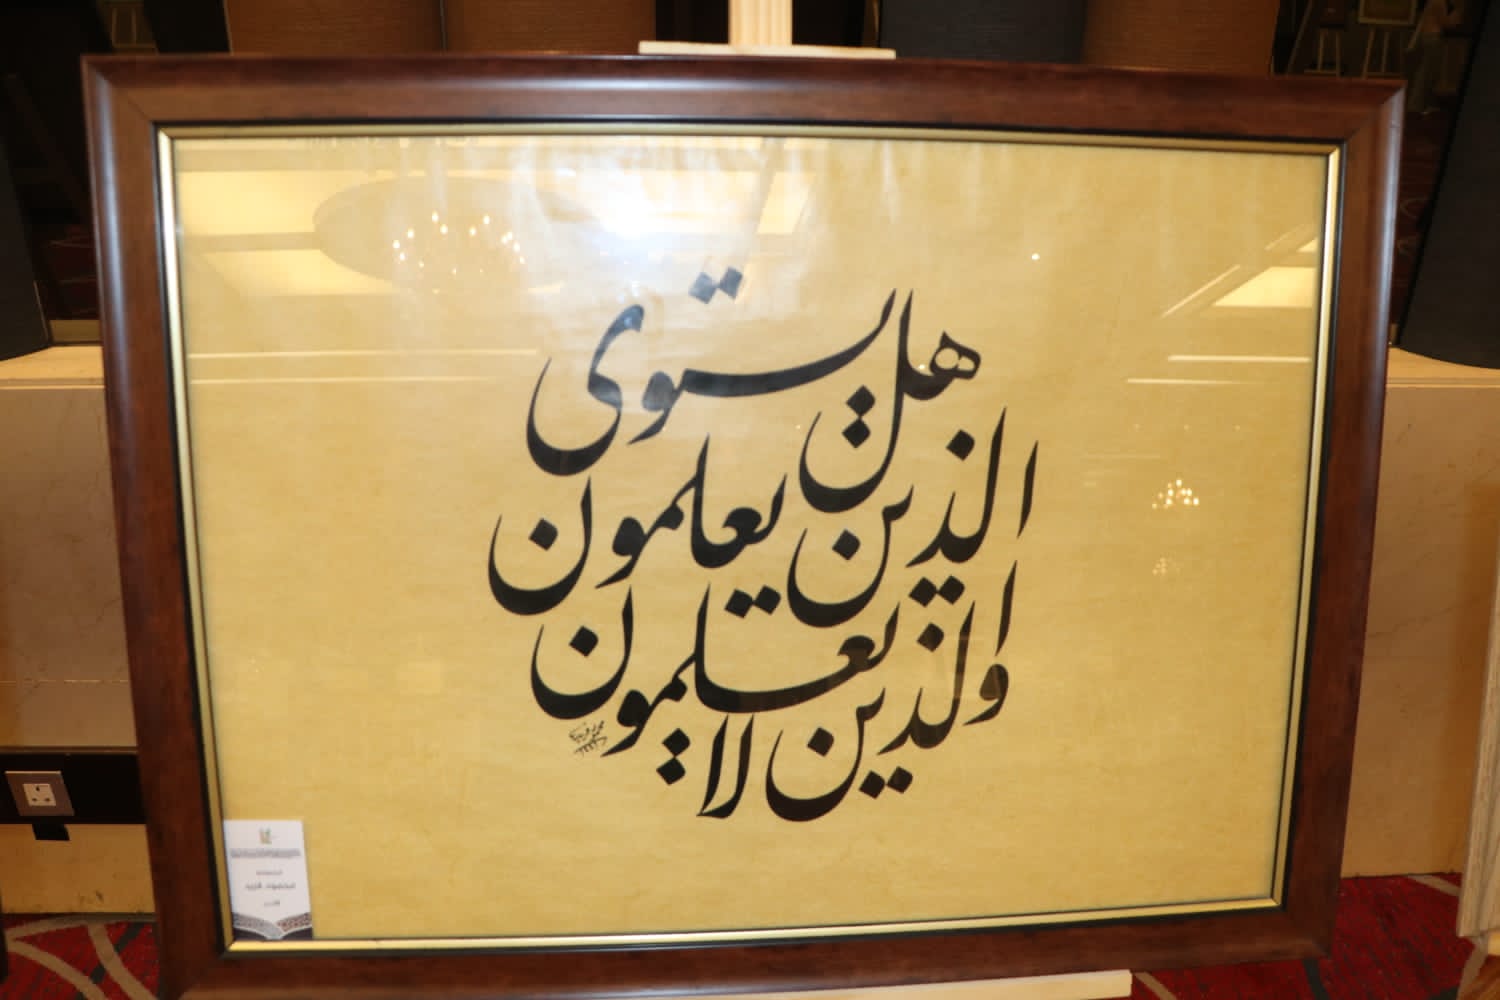 هل يستوى
الذين يعلمون
والذين لا يعلمون